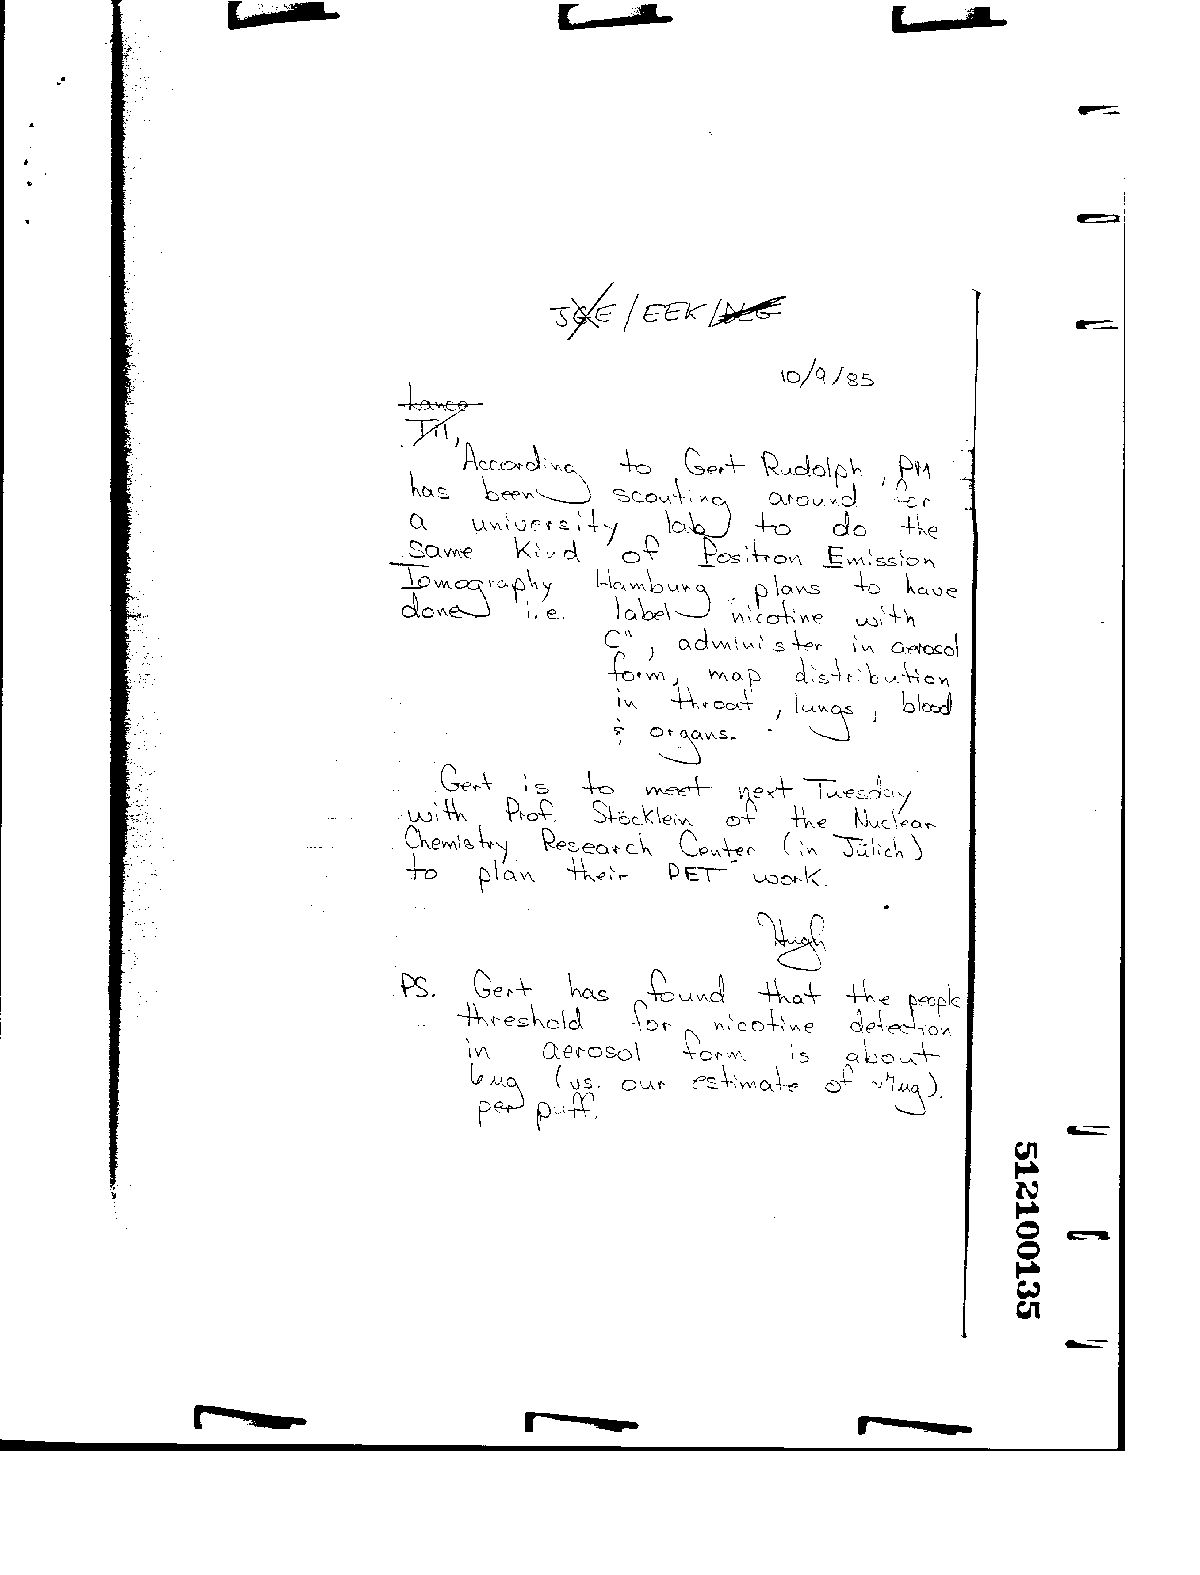 JGE/EEK/
10/9/85
Lance
Till,
According to Gert Rudolph, PM
has been scouting around for
a university lab to do the
same kind of Positron Emission
Tomography Hamburg plans to have
done i.e. label nicotine with
C", administer in aerosol
form, map distribution
in throat, lungs, blood
& organs.
Gert is to meet next Tuesday
with Prof. Stöcklein of the Nuclear
Chemistry Research Center (in Jülich)
to plan their PET work.
Hugh
PS. Gert has found that the people
threshold for nicotine detection
in aerosol form is about
6ug (vs. our estimate of
per puff.
51210 0135